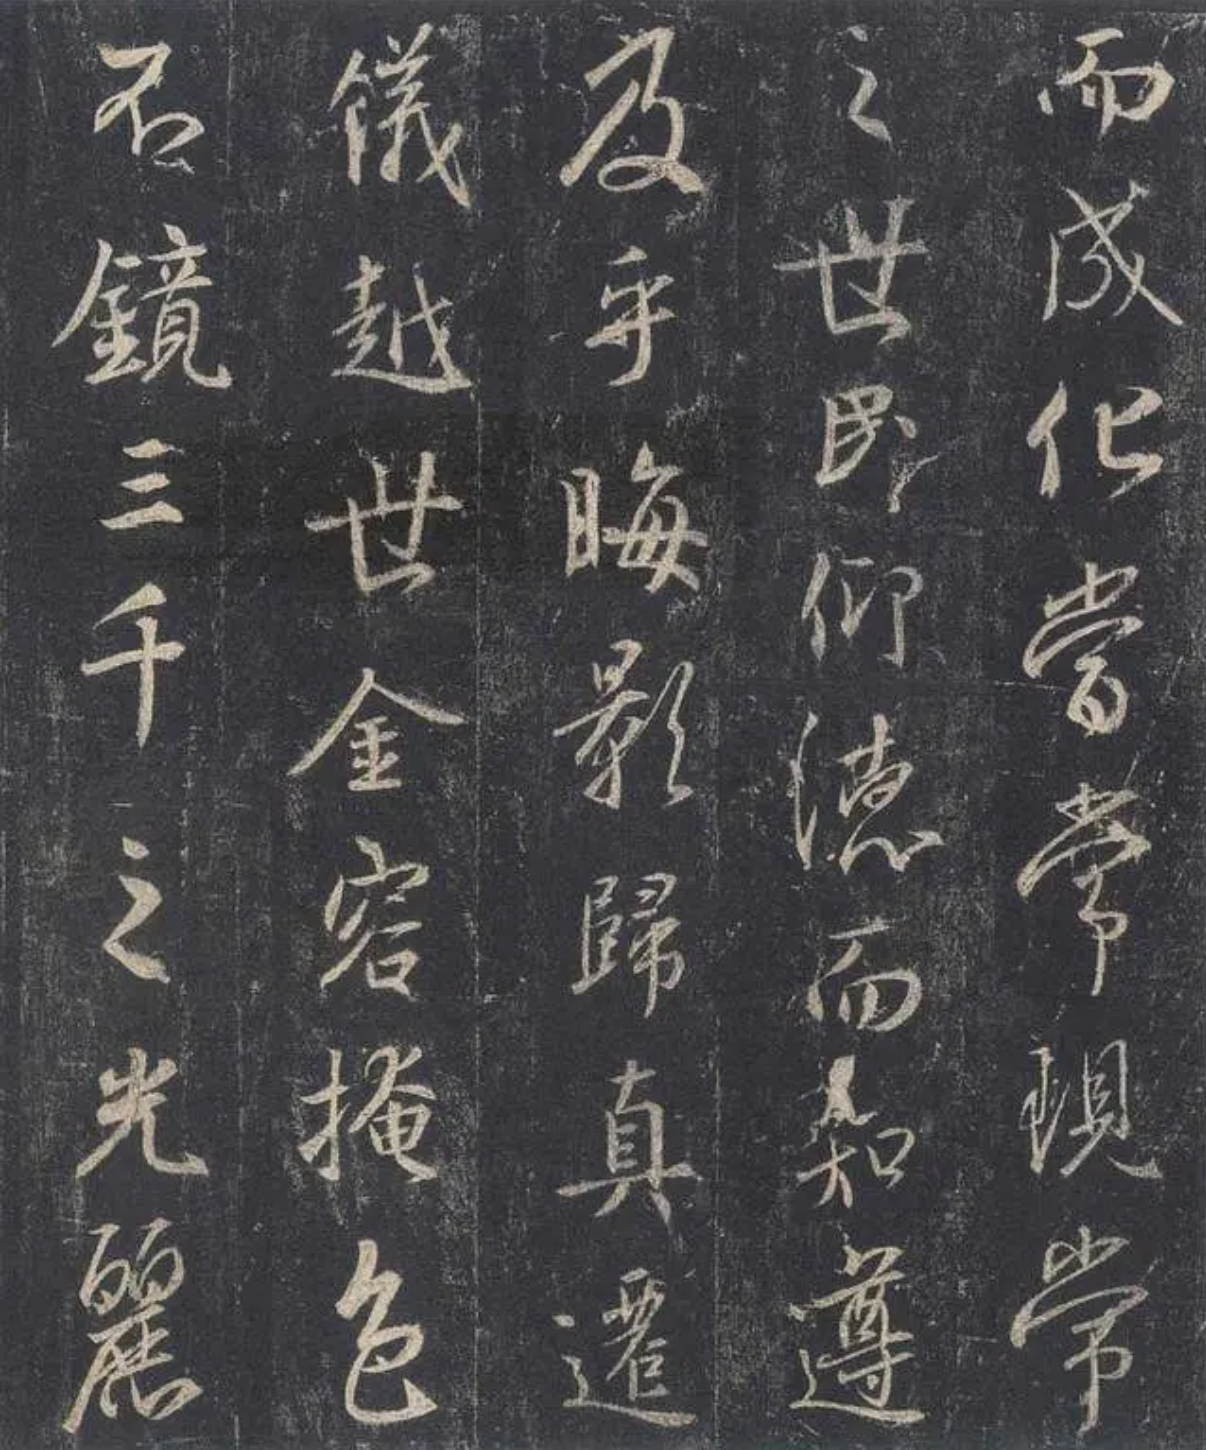 而成化當常現常
之世民仰德而知遵
及乎晦影歸真遷
儀越世金容掩色
不鏡三千之光麗